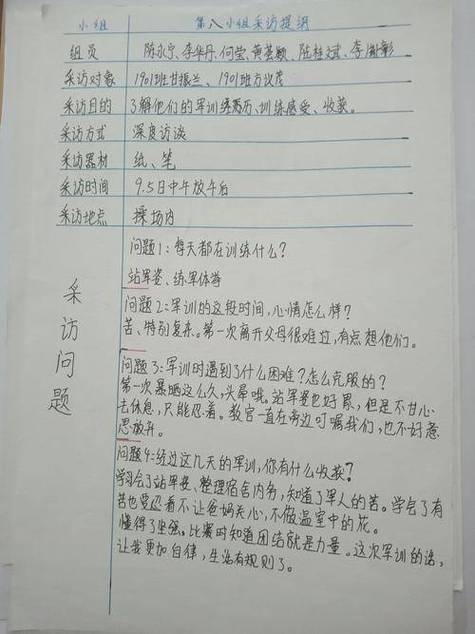 小组 第八小组采访提纲
组员 陈永宁、李华丹、何莹、黄莲颖、陆桂斌、李彰
采访对象 1901班甘振兰、1901班方议茂
采访目的 了解他们的军训经历、训练感受、收获。
采访方式 深度访谈
采访器材 纸、笔
采访时间 9.5日中午放午后
采访地点 操场内
采访问题
问题1:每天都在训练什么?
站军姿、练军体拳
问题2:军训的这段时间,心情怎么样?
苦、特别复杂。第一次离开父母很难过,有点想他们。
问题3:军训时遇到了什么困难?怎么克服的?
第一次暴晒这么久,头晕哦。站军姿也好累,但是不甘心
去休息,只能忍着。教官一直在旁边叮嘱我们,也不好意
思放弃。
问题4:经过这几天的军训,你有什么收获?
学习会了站军姿、整理宿舍内务,知道了军人的苦。学会了有
苦也要忍着不让爸妈关心,不做温室中的花。
懂得了坚强。比赛时知道团结就是力量。这次军训的话,
让我更加自律,生活有规则了。